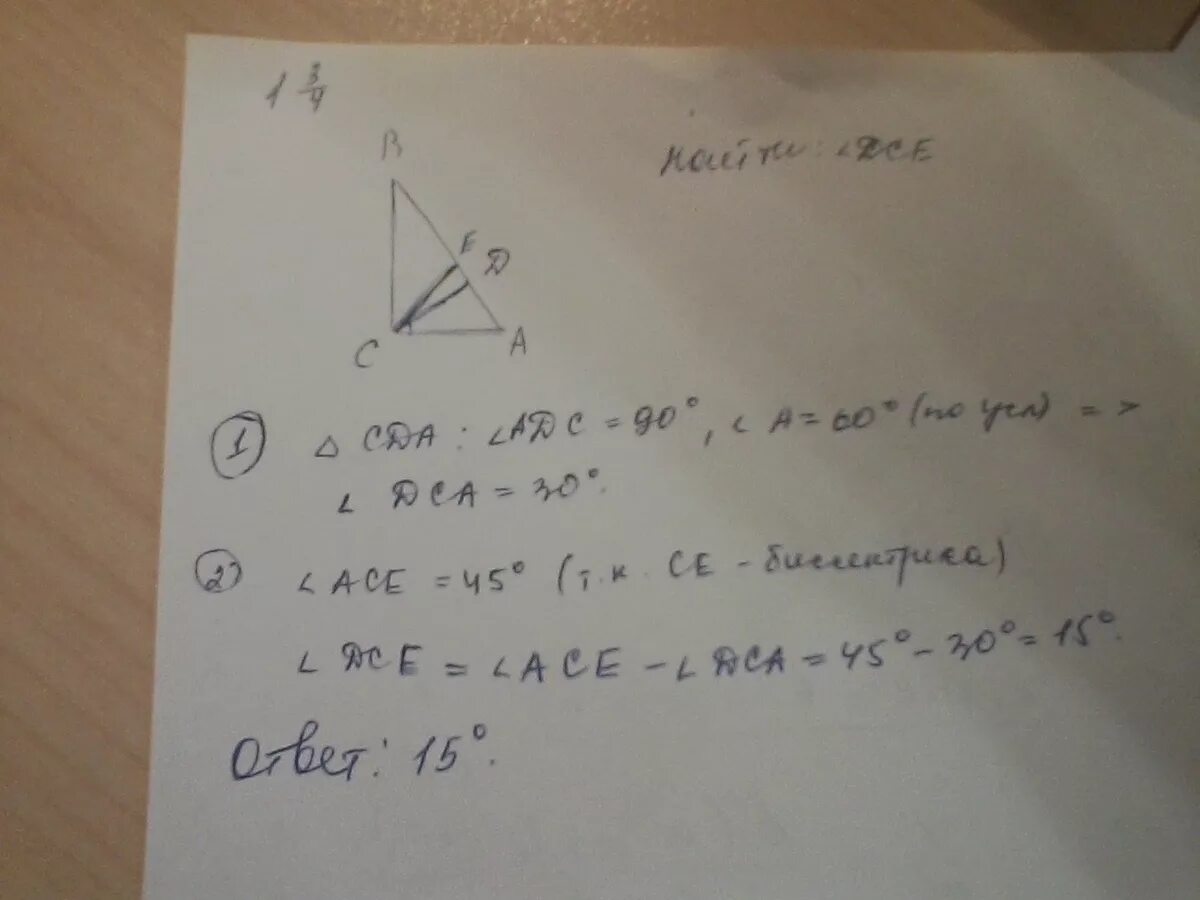 1 3/4
Найти: ∠DCE
B
E
D
C
A
1 △ CDA: ∠ADC = 90°, ∠A = 60° (по усл) =>
∠ DCA = 30°.
2) ∠ACE = 45° (т.к. CE - биссектриса)
∠ DCE = ∠ACE - ∠DCA = 45° - 30° = 15°.
Ответ: 15°.